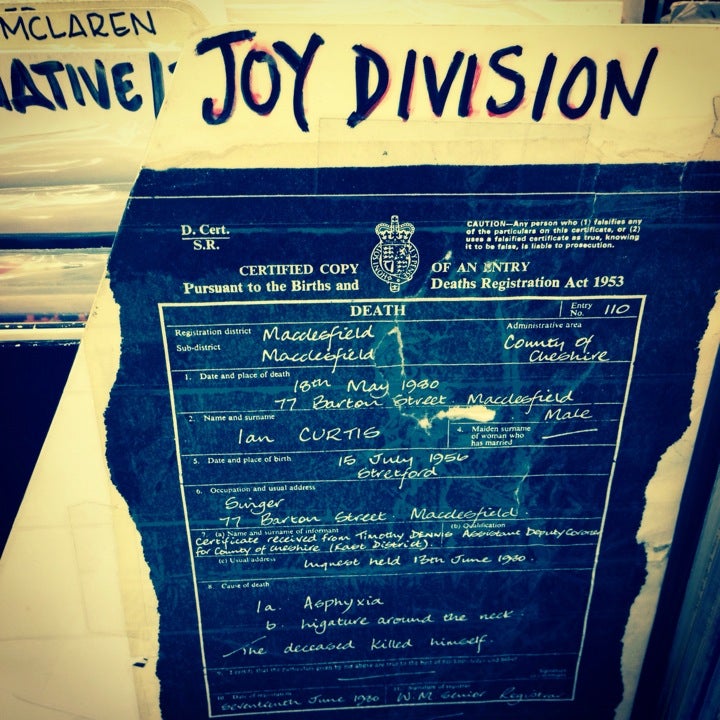 MCLAREN
JOY DIVISION
D. Cert.
S.R.
CAUTION—Any person who (1) falsifies any
of the particulars on this certificate, or (2)
uses a falsified certificate as true, knowing
it to be false, is liable to prosecution.
CERTIFIED COPY OF AN ENTRY
Pursuant to the Births and Deaths Registration Act 1953
DEATH
Entry No. 110
Registration district Macclesfield
Administrative area
Sub-district Macclesfield
County of Cheshire
1. Date and place of death
18th May 1980
77 Barton Street. Macclesfield
2. Name and surname
Ian CURTIS
Male
4. Maiden surname
of woman who
has married
5. Date and place of birth
15 July 1956
Stretford
6. Occupation and usual address
Singer
77 Barton Street. Macclesfield.
7. (a) Name and surname of informant
(b) Qualification
Certificate received from Timothy DENNIS Assistant Deputy Coroner
for County of Cheshire (East District).
(c) Usual address
Inquest held 13th June 1980.
8. Cause of death
1a. Asphyxia
b. ligature around the neck
The deceased killed himself.
9. I certify that the particulars given by me above are true to the best of my knowledge and belief
Seventeenth June 1980
Signature of registrar
W.M Senior